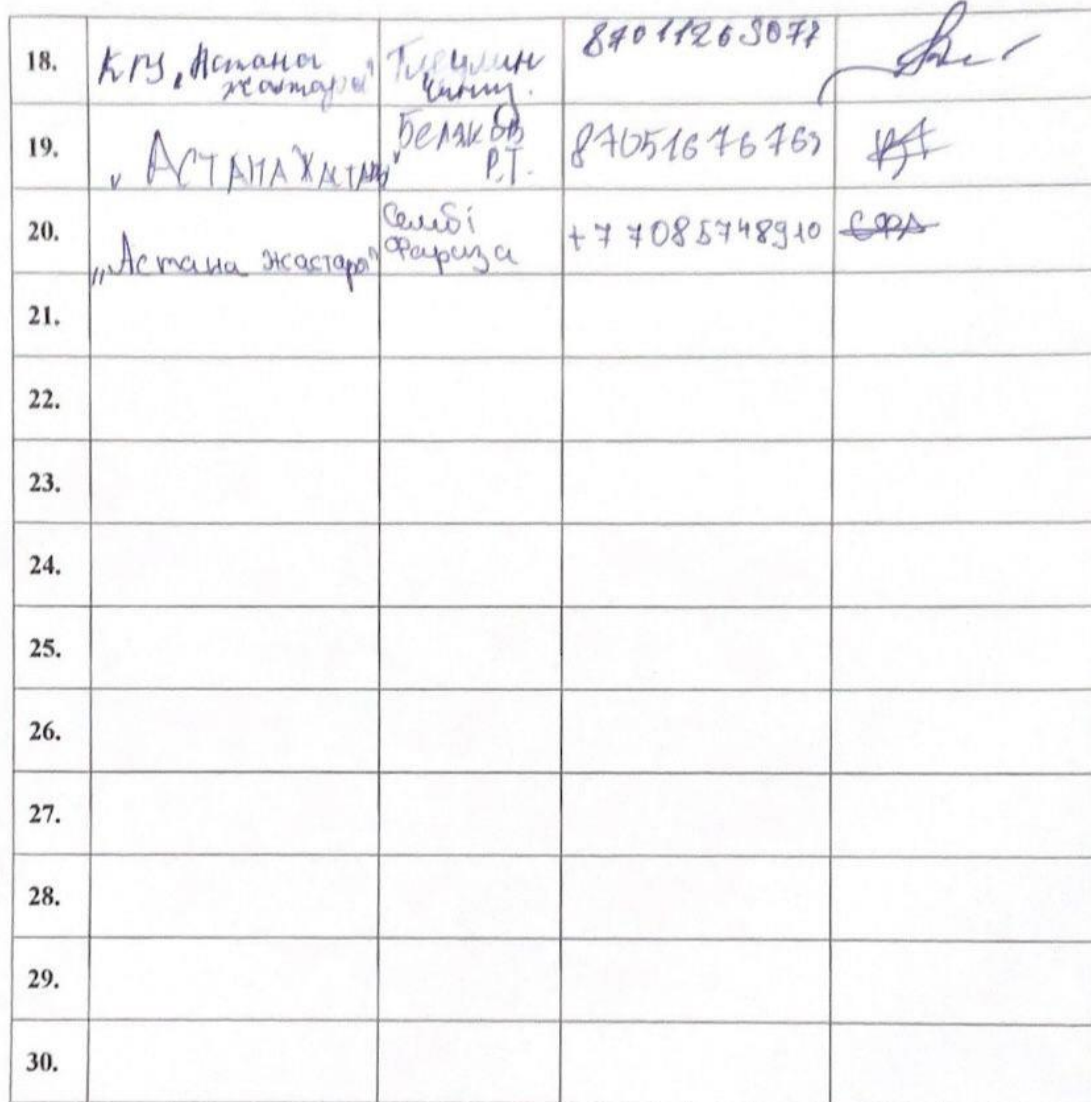 18. КГУ „Астана жастары" Тлеулин 87011263077
19. „АСТАНА ЖАСТАРЫ" Беляков Р.Т. 87051676763
20. „Астана жастары" Сембі Фараза +77085748910
21.
22.
23.
24.
25.
26.
27.
28.
29.
30.